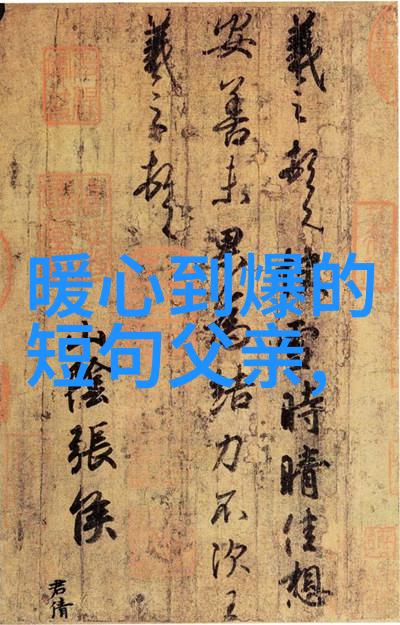 暖心到爆的
短句父亲,
羲之頓首雪時晴佳想
安善未果為結力不次王
羲之頓首
山陰張侯
君倩